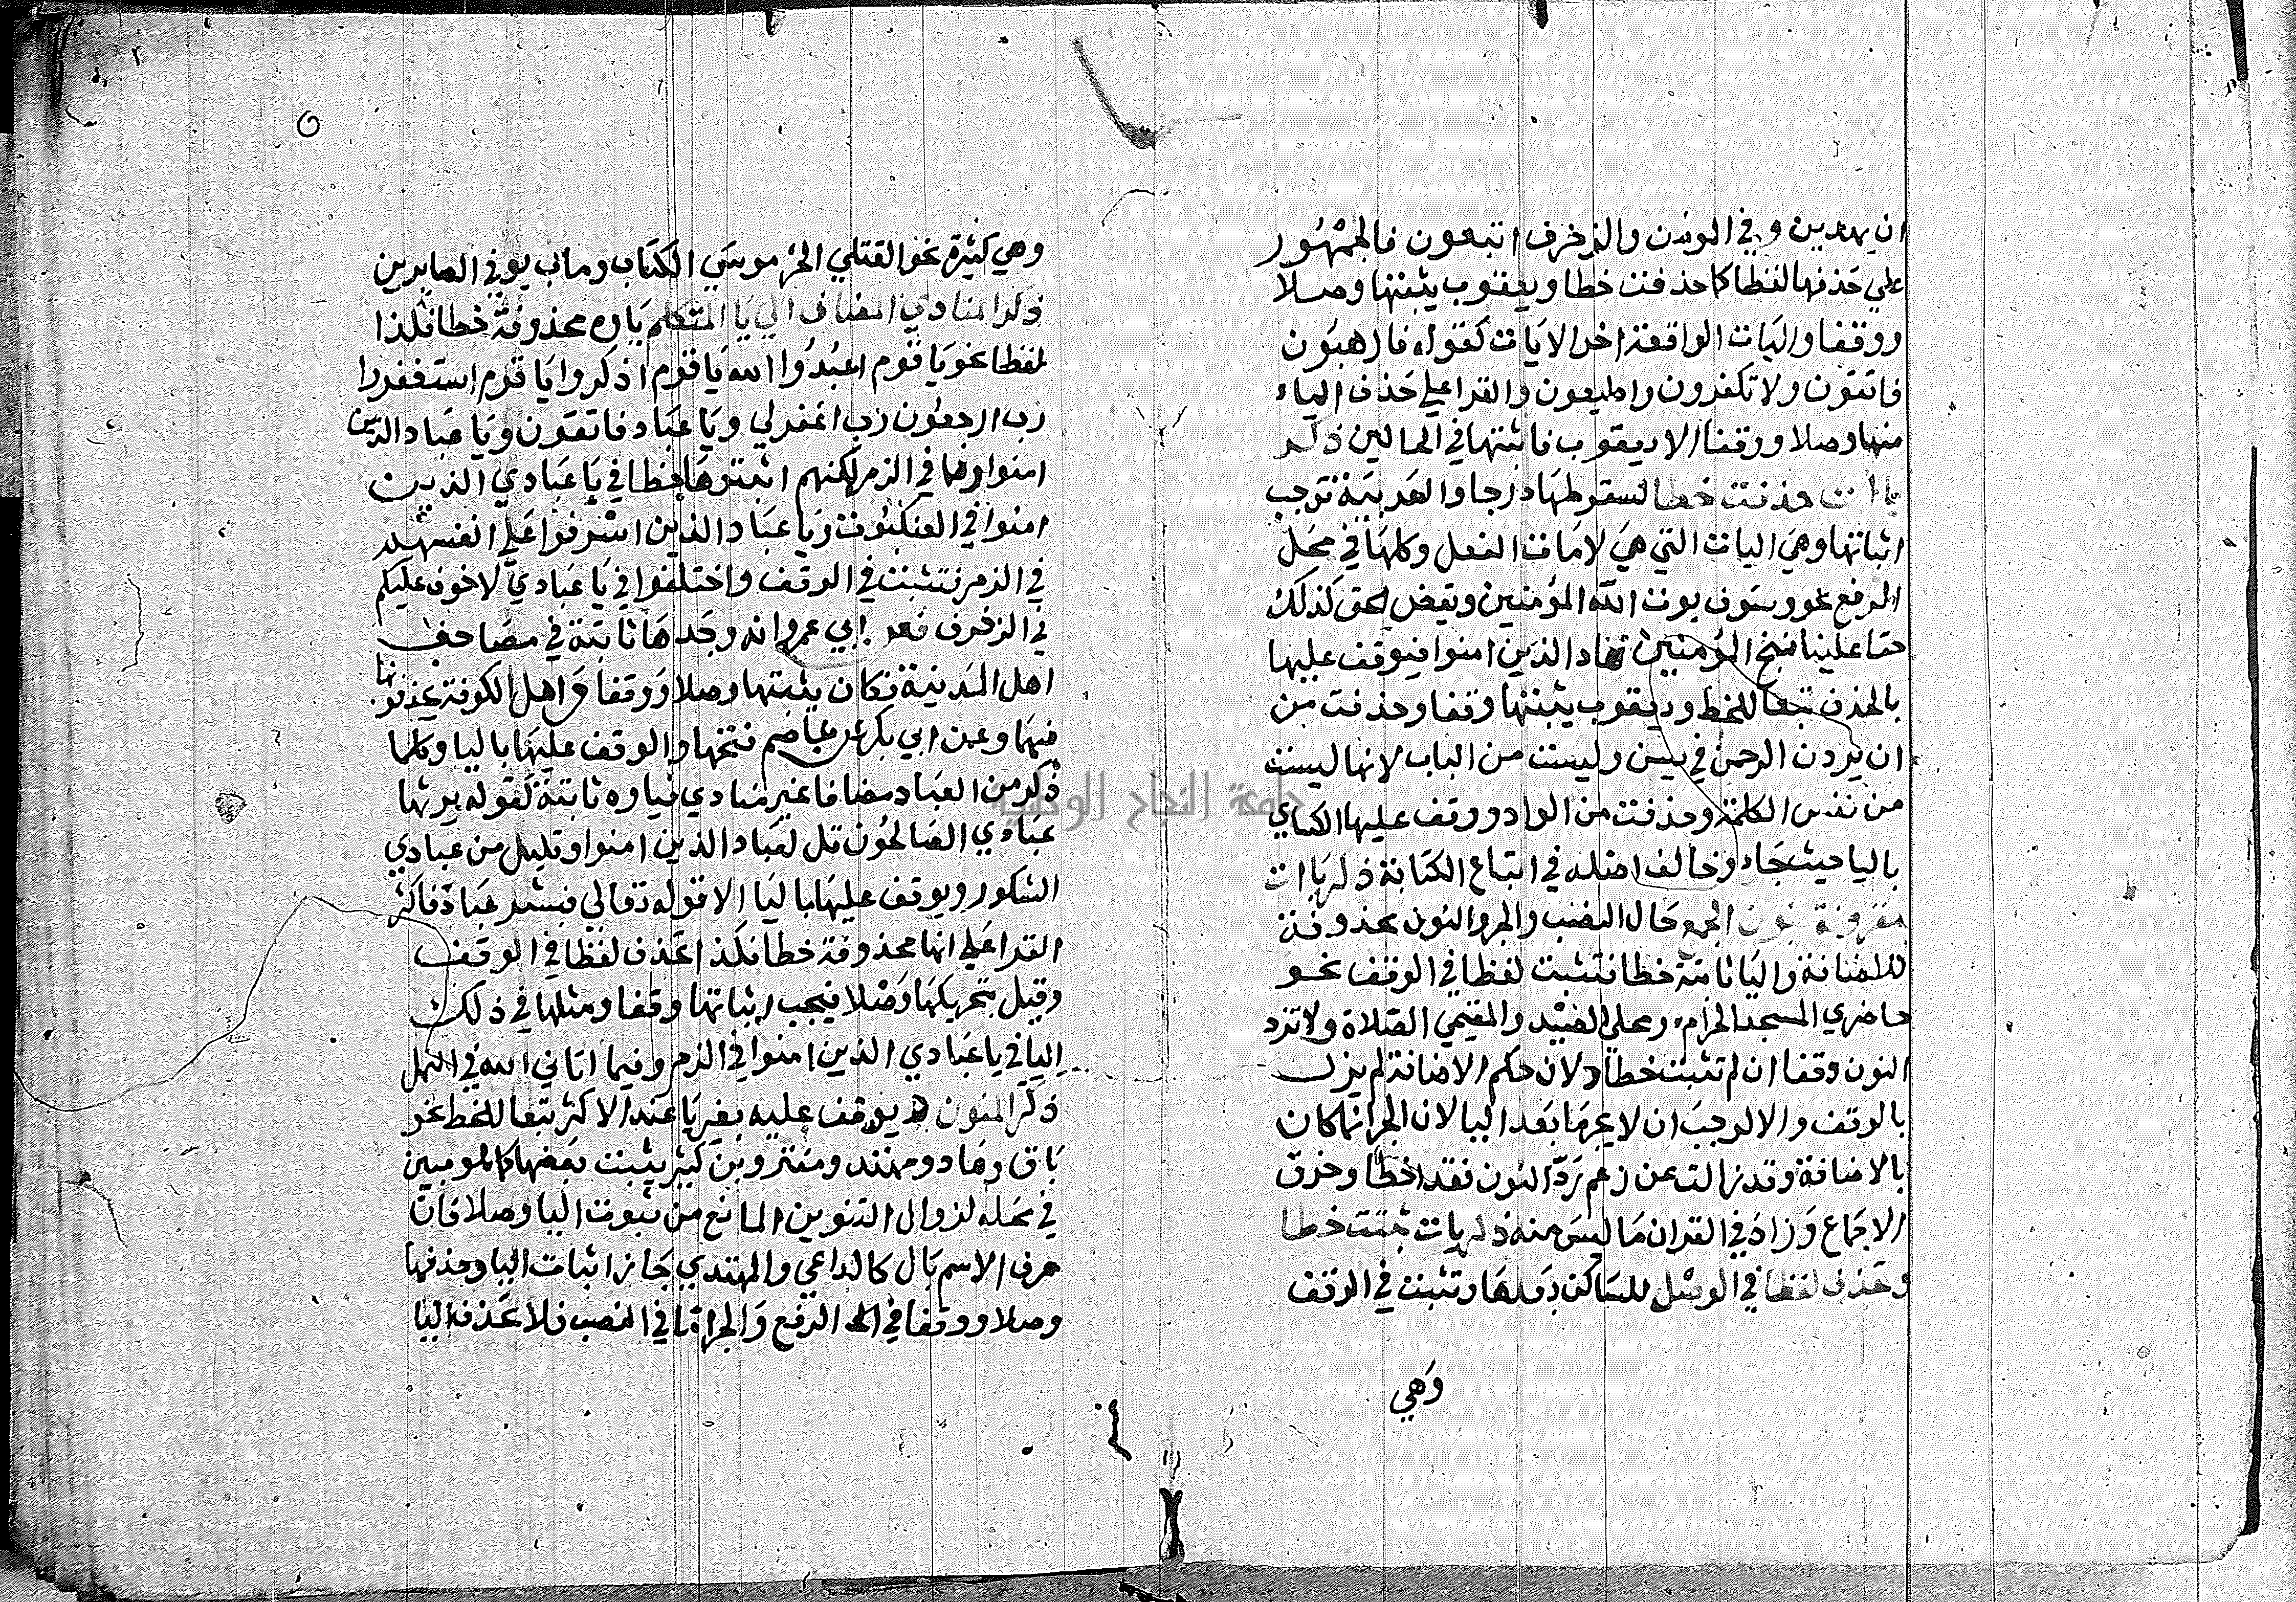 ان يهدين وفي المؤمن والزخرف اتبعون فالجمْهُور
علي حَذفها لفظا كما حذفت خطا ويعقوب يثبتها وصلا
ووقفا واليَات الواقعة اخر الايَات كقوله فارهبُون
فاتقون ولا تكفرون واطيعون والقرا علي حَذف الياء
منها وصلا ووقفا الا يعقوب فاثبتها في الحالين ذكر
يا ات حذفت خطا لسقوطهَا درجا والعَربيَة توجب
اثباتها وهيَ اليات التي هيَ لامَات الفعل وكلهَا في محَل
الرفع نحو وسَوف يوت الله المؤمنين ويقض الحق كذلك
حقا علينا ننج المؤمنين لهاد الذين امنوا فيوقف عليها
بالحذف تبعا للخط ويعقوب يثبتها وقفا وحذفت من
ان يردن الرحمن في يس وليست من الباب لانها ليست
من نفس الكلمة وحذفت من الواد ووقف عليها الكساي
باليا حيث جَاء وخالف اصْله في اتباع الكتابة ذكر يَا ات
مقرونة بنون الجمع حَال النصب والجر والنون محذوفة
للاضافة واليا ثابتة خطا فتثبت لفظا في الوقف نحو
حاضري المسجد الحرام ومحلي الصَيْد والمقيمي الصَلاة ولا ترد
النون وقفا ان لم تثبت خطا ولان حكم الاضافة لم يزل
بالوقف والا لوجبَ ان لا يجرهَا بَعد اليا لان الجر انما كان
بالاضافة وقد زالت عمن زعم رَدّ النون فقد اخطا وخرق
الاجمَاع وَزادَ في القران مَا ليسَ منه ذكر يات ثبتت خطا
وتحَذف لفظا في الوصْل للسَاكن بَعدهَا وتثبت في الوقف
وَهي
وهي كثيرة نحو القتلي الحُر موسَي الكتَاب وماب يوفي الصابرين
ذكر المنادي المضاف الي يَا المتكلم ياوه محذوفة خطا فكذا
لفظا نحو يَا قوم اعبُدُوا الله يَا قوم اذكروا يَا قوم استغفروا
رب ارجعُون رَب اغفر لي ويَا عبَاد فاتقون ويَا عبَاد الذين
امنوا وهما في الزمر لكنهم اثبتوهَا خطا في يَا عبَادي الذين
امنوا في العنكبوت ويَا عبَاد الذين اسْرفوا عَلي انفسهم
في الزمر فتثبت في الوقف واختلفوا في يَا عبَادي لا خوف عليكم
في الزخرف فعن ابي عمرو انه وجَدهَا ثابتة في مصَاحف
اهل المدينة فكان يثبتها وصلا وَوقفا وَاهل الكوفة يحذفونها
فيهمَا وعن ابي بكر عن عَاصم فتحها والوقف عليهَا باليا وكلما
ذكر من العبَاد مضافا غير منادي فياوه ثابتة كقوله يرثها
عبَادي الصَالحُون قل لعبَاد الذين امنوا وقليل من عبادي
الشكور ويوقف عليهَا باليَا الا قوله تعالي فبشر عبَاد فاكثر
القرا عَلي انها محذوفة خطا فكذا تحَذف لفظا في الوقف
وقيل بتحريكهَا وَصْلا فيجب اثباتها وقفا ومثلها في ذلك
اليا في يا عبَادي الذين امنوا في الزمر وفيما اتاني الله في النمل
ذكر المنون يوقف عليه بغير يَا عند الاكثر تبعا للخط نحو
بَاق وهَاد ومهتد ومفتر وبن كثير يثبت بعَضها كالموميين
في محَله لزوال التنوين المانع من ثبوت اليا وصلا فان
عرف الاسم بَال كالداعي والمهتدي جَاز اثبات اليا وحذفها
وصلا ووقفا في الرفع وَالجر امَا في النصب فلا تحَذف اليا
جامعة النجاح الوطنية